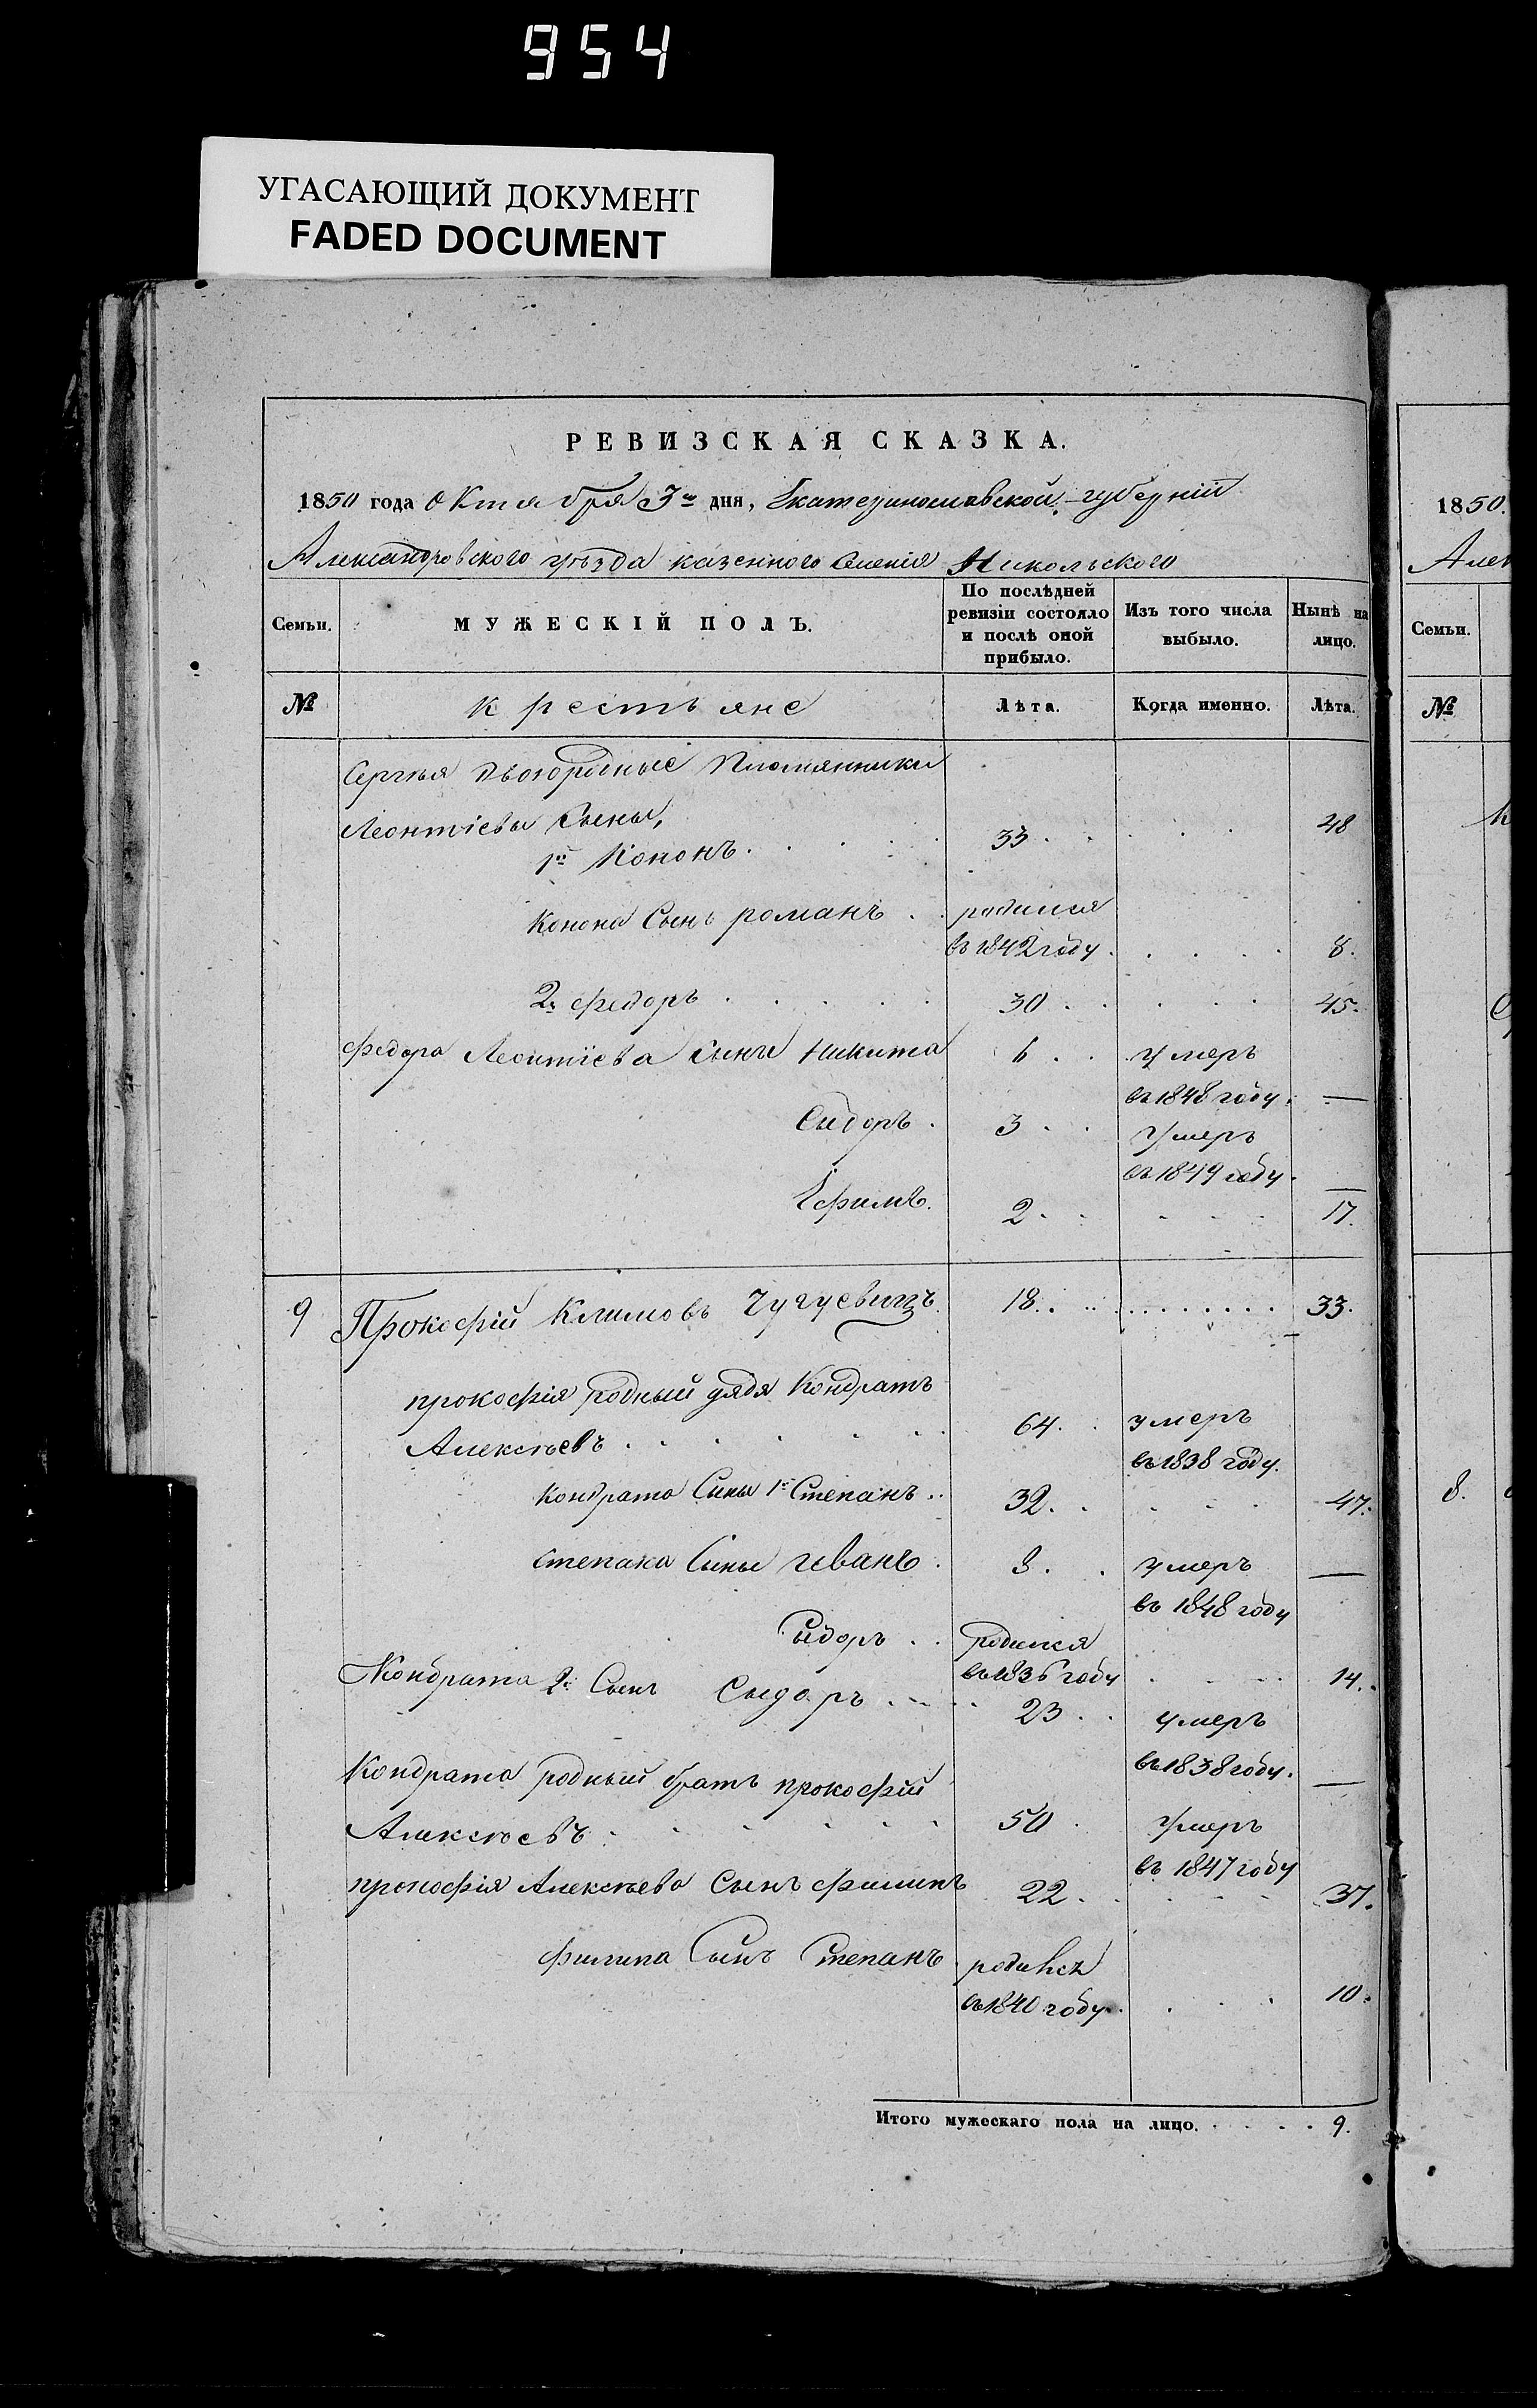 954
УГАСАЮЩИЙ ДОКУМЕНТ
FADED DOCUMENT
РЕВИЗСКАЯ СКАЗКА.
1850 года Октября 3го дня, Екатеринославской губерніи
Александровского уѣзда казенного селенія Никольского
Семьи.
МУЖЕСКІЙ ПОЛЪ.
По послѣдней ревизіи состояло и послѣ оной прибыло.
Изъ того числа выбыло.
Ныне на лицо.
№
крестьяне
Лѣта.
Когда именно.
Лѣта.
Сергѣя двоюродные племянники
Леонтіевы Сыны,
1й Кононъ 33 48
Конона Сынъ романъ родился
въ 1842 году 8.
2й федоръ 30 45.
федора Леонтіева сыны Никита 6 умеръ
въ 1848 году —
Сидоръ 3 умеръ
въ 1849 году —
Ефимъ. 2 17.
9 Прокофій Климовъ Чугуевецъ 18 33.
прокофія родный дядя Кондратъ
Алексѣевъ 64 умеръ
въ 1838 году.
Кондрата Сыны 1й Степанъ 32. 47.
степана Сыны иванъ 3. умеръ —
въ 1848 году
Сидоръ родился
въ 1836 году 14.
Кондрата 2й Сынъ Сидоръ 23 умеръ
въ 1838 году. —
Кондрата родный братъ прокофій
Алексѣевъ 50 умеръ
въ 1847 году
прокофія Алексѣева Сынъ филипъ 22 37.
филипа Сынъ Степанъ родился
въ 1840 году 10.
Итого мужескаго пола на лицо. 9.
1850.
Алек
Семьи.
№
8.